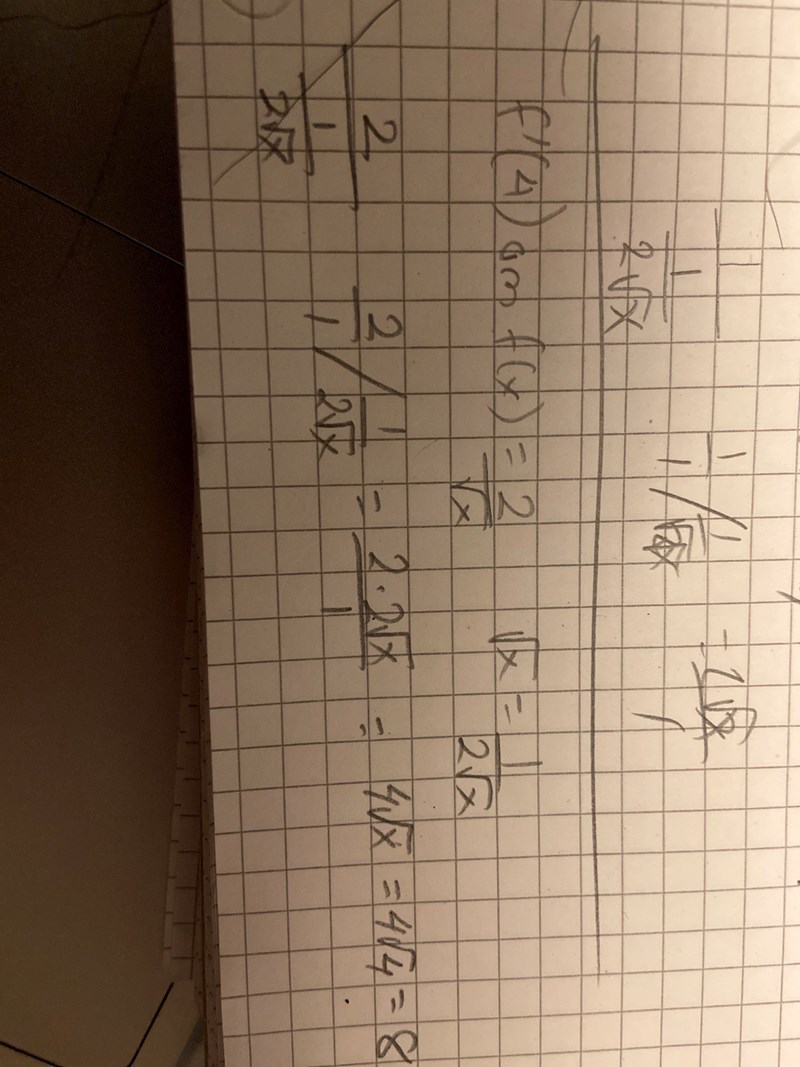 1/(1/(2√x)) 1/1 / 1/ = 2√x/1
f'(4) om f(x) = 2/√x √x = 1/(2√x)
2/(1/(2√x)) 2/1 / 1/(2√x) = 2·2√x/1 = 4√x = 4√4 = 8